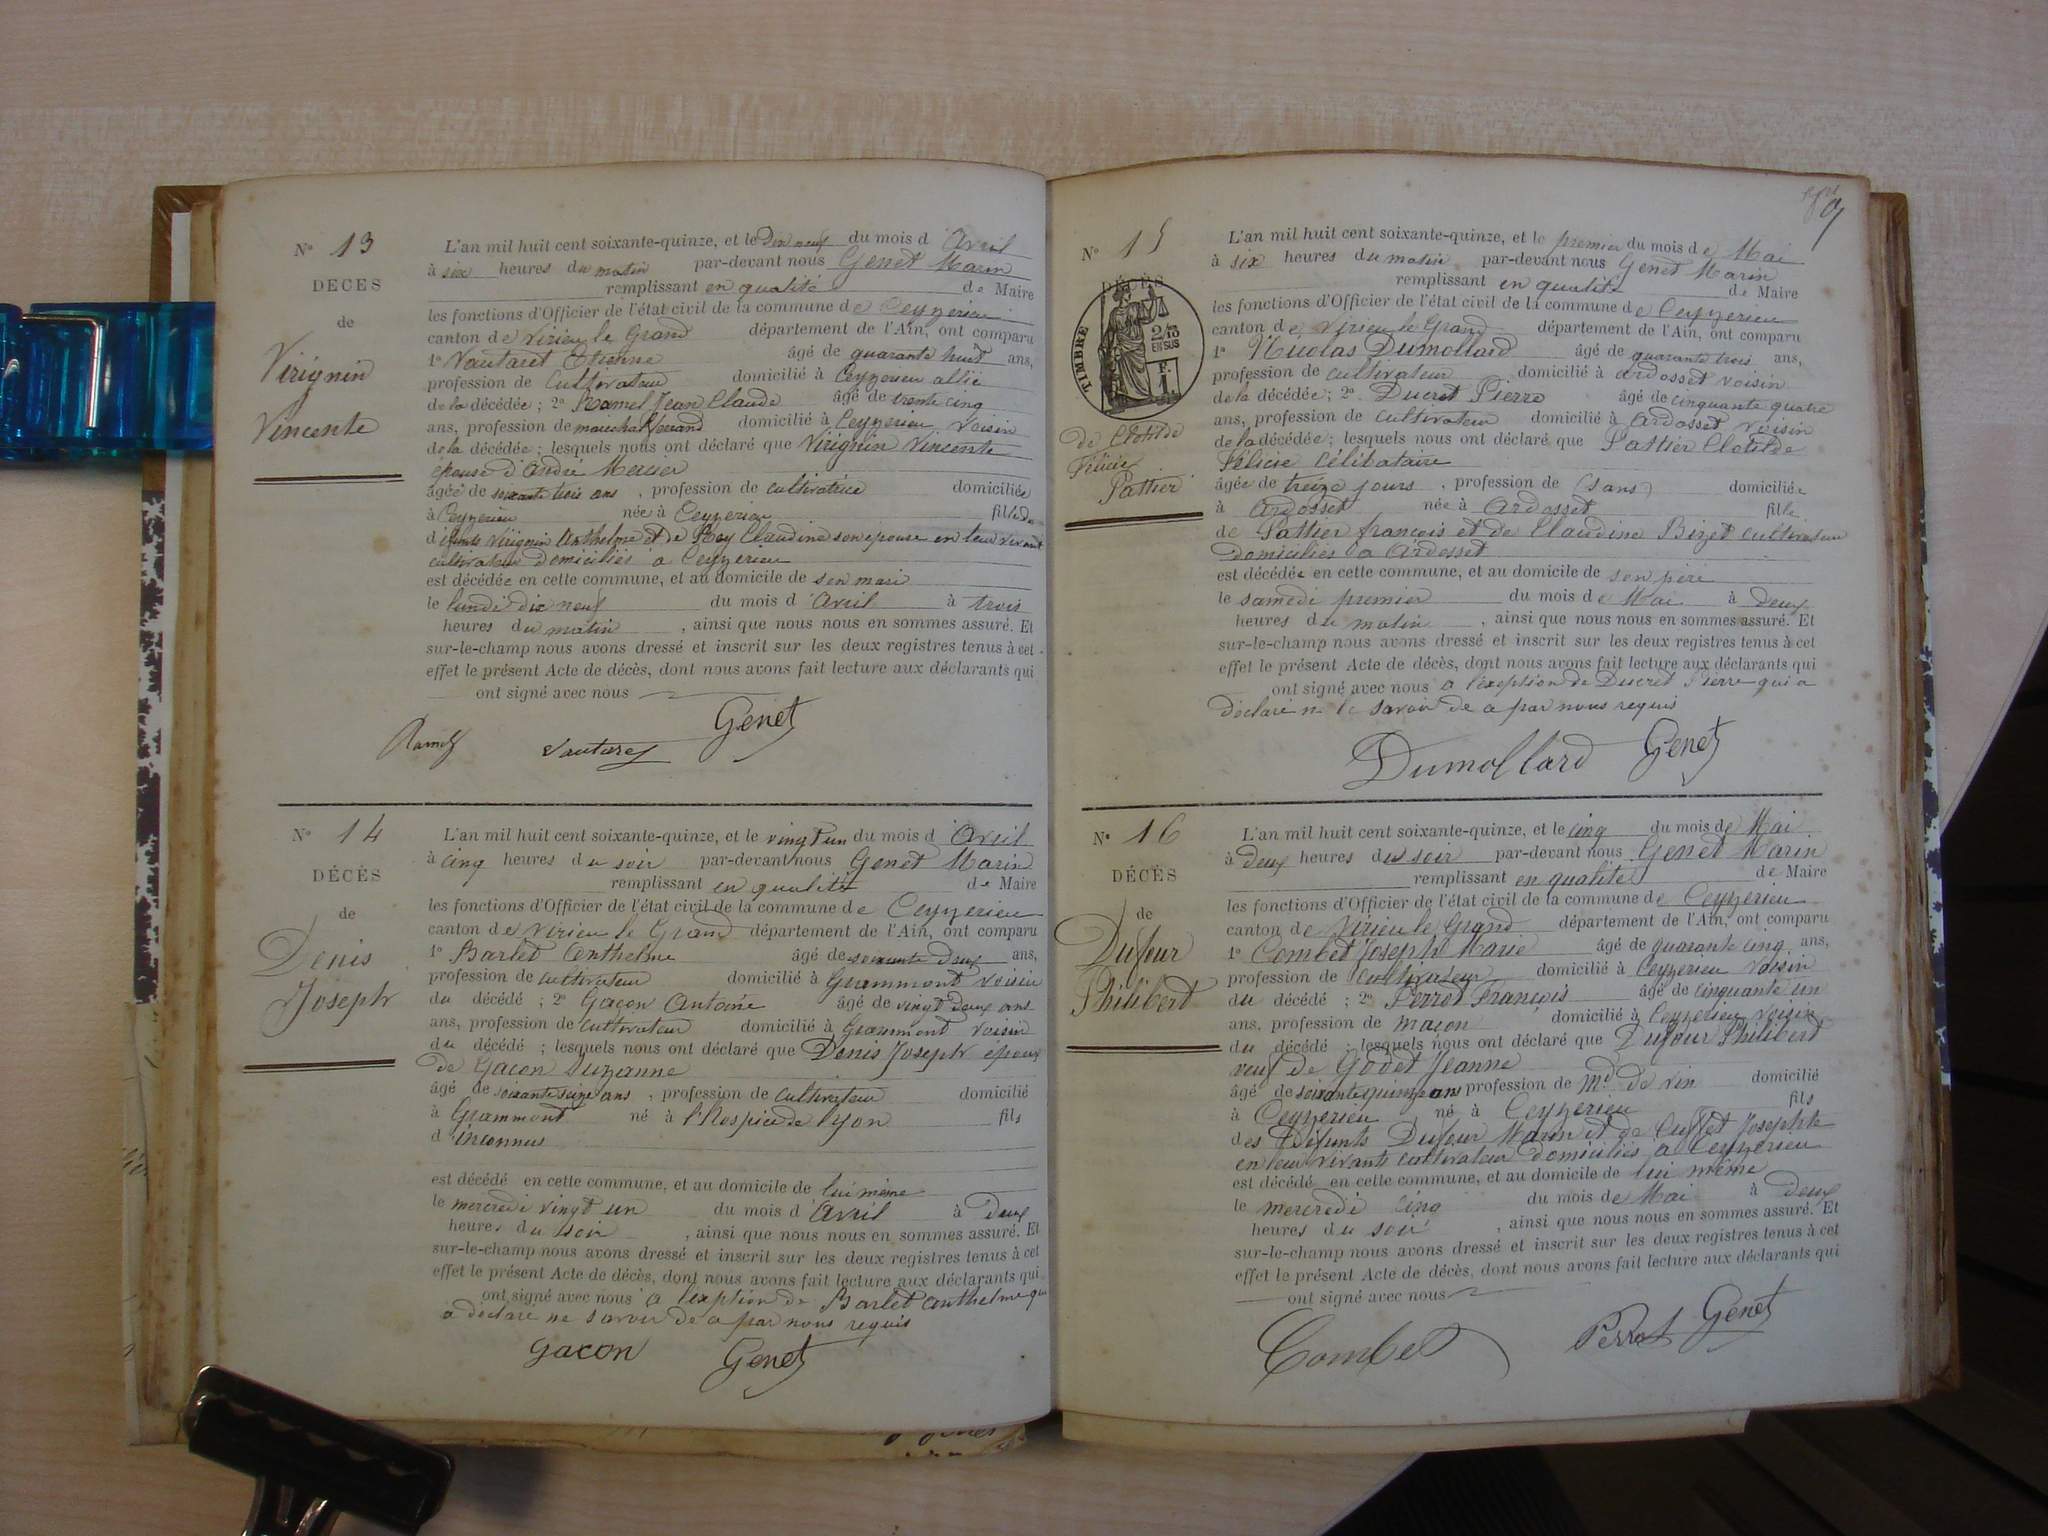 N° 13
DECES
de
Virignin
Vincente
L'an mil huit cent soixante-quinze, et le Dix neuf du mois d'Avril
à six heures du matin par-devant nous Genet Marin
remplissant en qualité de Maire
les fonctions d'Officier de l'état civil de la commune de Ceyzerieu
canton de Virieu le Grand département de l'Ain, ont comparu
1° Vautaret Etienne âgé de quarante huit ans,
profession de Cultivateur domicilié à Ceyzerieu allié
de la décédée ; 2° Ramel Jean Claude âgé de trente cinq
ans, profession de marechal ferrand domicilié à Ceyzerieu, Voisin
de la décédée ; lesquels nous ont déclaré que Virignin Vincente
épouse d'André Mercier
âgée de soixante trois ans , profession de cultivatrice domiciliée
à Ceyzerieu née à Ceyzerieu fille de
Virignin Anthelme et de Rey Claudine son epouse en leur vivant
cultivateur domiciliés a Ceyzerieu
est décédée en cette commune, et au domicile de son mari
le lundi dix neuf du mois d'Avril à trois
heures du matin , ainsi que nous nous en sommes assuré. Et
sur-le-champ nous avons dressé et inscrit sur les deux registres tenus à cet
effet le présent Acte de décès, dont nous avons fait lecture aux déclarants qui
ont signé avec nous
Ramel Vautaret Genet
N° 14
DÉCÈS
de
Denis
Joseph
L'an mil huit cent soixante-quinze, et le vingt un du mois d'Avril
à cinq heures du soir par-devant nous Genet Marin
remplissant en qualité de Maire
les fonctions d'Officier de l'état civil de la commune de Ceyzerieu
canton de Virieu le Grand département de l'Ain, ont comparu
1° Barlet Anthelme âgé de soixante deux ans,
profession de cultivateur domicilié à Grammont voisin
du décédé ; 2° Gacon Antoine âgé de vingt deux ans
ans, profession de cultivateur domicilié à Grammont voisin
du décédé ; lesquels nous ont déclaré que Denis Joseph époux
de Gacon Suzanne
âgé de soixante seize ans , profession de cultivateur domicilié
à Grammont né à l'Hospice de Lyon fils
d'inconnus
est décédé en cette commune, et au domicile de lui même
le mercredi vingt un du mois d'Avril à Deux
heures du soir , ainsi que nous nous en sommes assuré. Et
sur-le-champ nous avons dressé et inscrit sur les deux registres tenus à cet
effet le présent Acte de décès, dont nous avons fait lecture aux déclarants qui
ont signé avec nous a l'exption de Barlet Anthelme qui
a déclaré ne savoir de a par nous requis
Gacon Genet
N° 15
DÉCÈS
TIMBRE
2/10
EN SUS
F.
1.
de Clotilde
Félicie
Pattier
L'an mil huit cent soixante-quinze, et le premier du mois de Mai
à six heures du matin par-devant nous Genet Marin
remplissant en qualité de Maire
les fonctions d'Officier de l'état civil de la commune de Ceyzerieu
canton de Virieu le Grand département de l'Ain, ont comparu
1° Nicolas Dumollard âgé de quarante trois ans,
profession de cultivateur domicilié à ardosset voisin
de la décédée ; 2° Ducret Pierre âgé de cinquante quatre
ans, profession de cultivateur domicilié à Ardosset voisin
de la décédée ; lesquels nous ont déclaré que Pattier Clotilde
Félicie Célibataire
âgée de treize jours , profession de (sans) domiciliée
à Ardosset née à Ardosset fille
de Pattier françois et de Claudine Bizet cultivateur
domiciliés a Ardosset
est décédée en cette commune, et au domicile de son père
le samedi premier du mois de Mai à Deux
heures du matin , ainsi que nous nous en sommes assuré. Et
sur-le-champ nous avons dressé et inscrit sur les deux registres tenus à cet
effet le présent Acte de décès, dont nous avons fait lecture aux déclarants qui
ont signé avec nous a l'exeption de Ducret Pierre qui a
déclaré ne le savoir de a par nous requis
Dumollard Genet
N° 16
DÉCÈS
de
Dufour
Philibert
L'an mil huit cent soixante-quinze, et le cinq du mois de Mai
à deux heures du soir par-devant nous Genet Marin
remplissant en qualité de Maire
les fonctions d'Officier de l'état civil de la commune de Ceyzerieu
canton de Virieu le Grand département de l'Ain, ont comparu
1° Combet Joseph Marie âgé de quarante cinq ans,
profession de cultivateur domicilié à Ceyzerieu voisin
du décédé ; 2° Perrot François âgé de cinquante un
ans, profession de maçon domicilié à Ceyzerieu voisin
du décédé ; lesquels nous ont déclaré que Dufour Philibert
veuf de Godet Jeanne
âgé de soixante quinze ans profession de Md de vin domicilié
à Ceyzerieu né à Ceyzerieu fils
des Défunts Dufour Marin et de Cuffet Josephte
en leur vivants cultivateur domiciliés a Ceyzerieu
est décédé en cette commune, et au domicile de lui même
le mercredi cinq du mois de Mai à Deux
heures du soir , ainsi que nous nous en sommes assuré. Et
sur-le-champ nous avons dressé et inscrit sur les deux registres tenus à cet
effet le présent Acte de décès, dont nous avons fait lecture aux déclarants qui
ont signé avec nous
Combet Perrot Genet